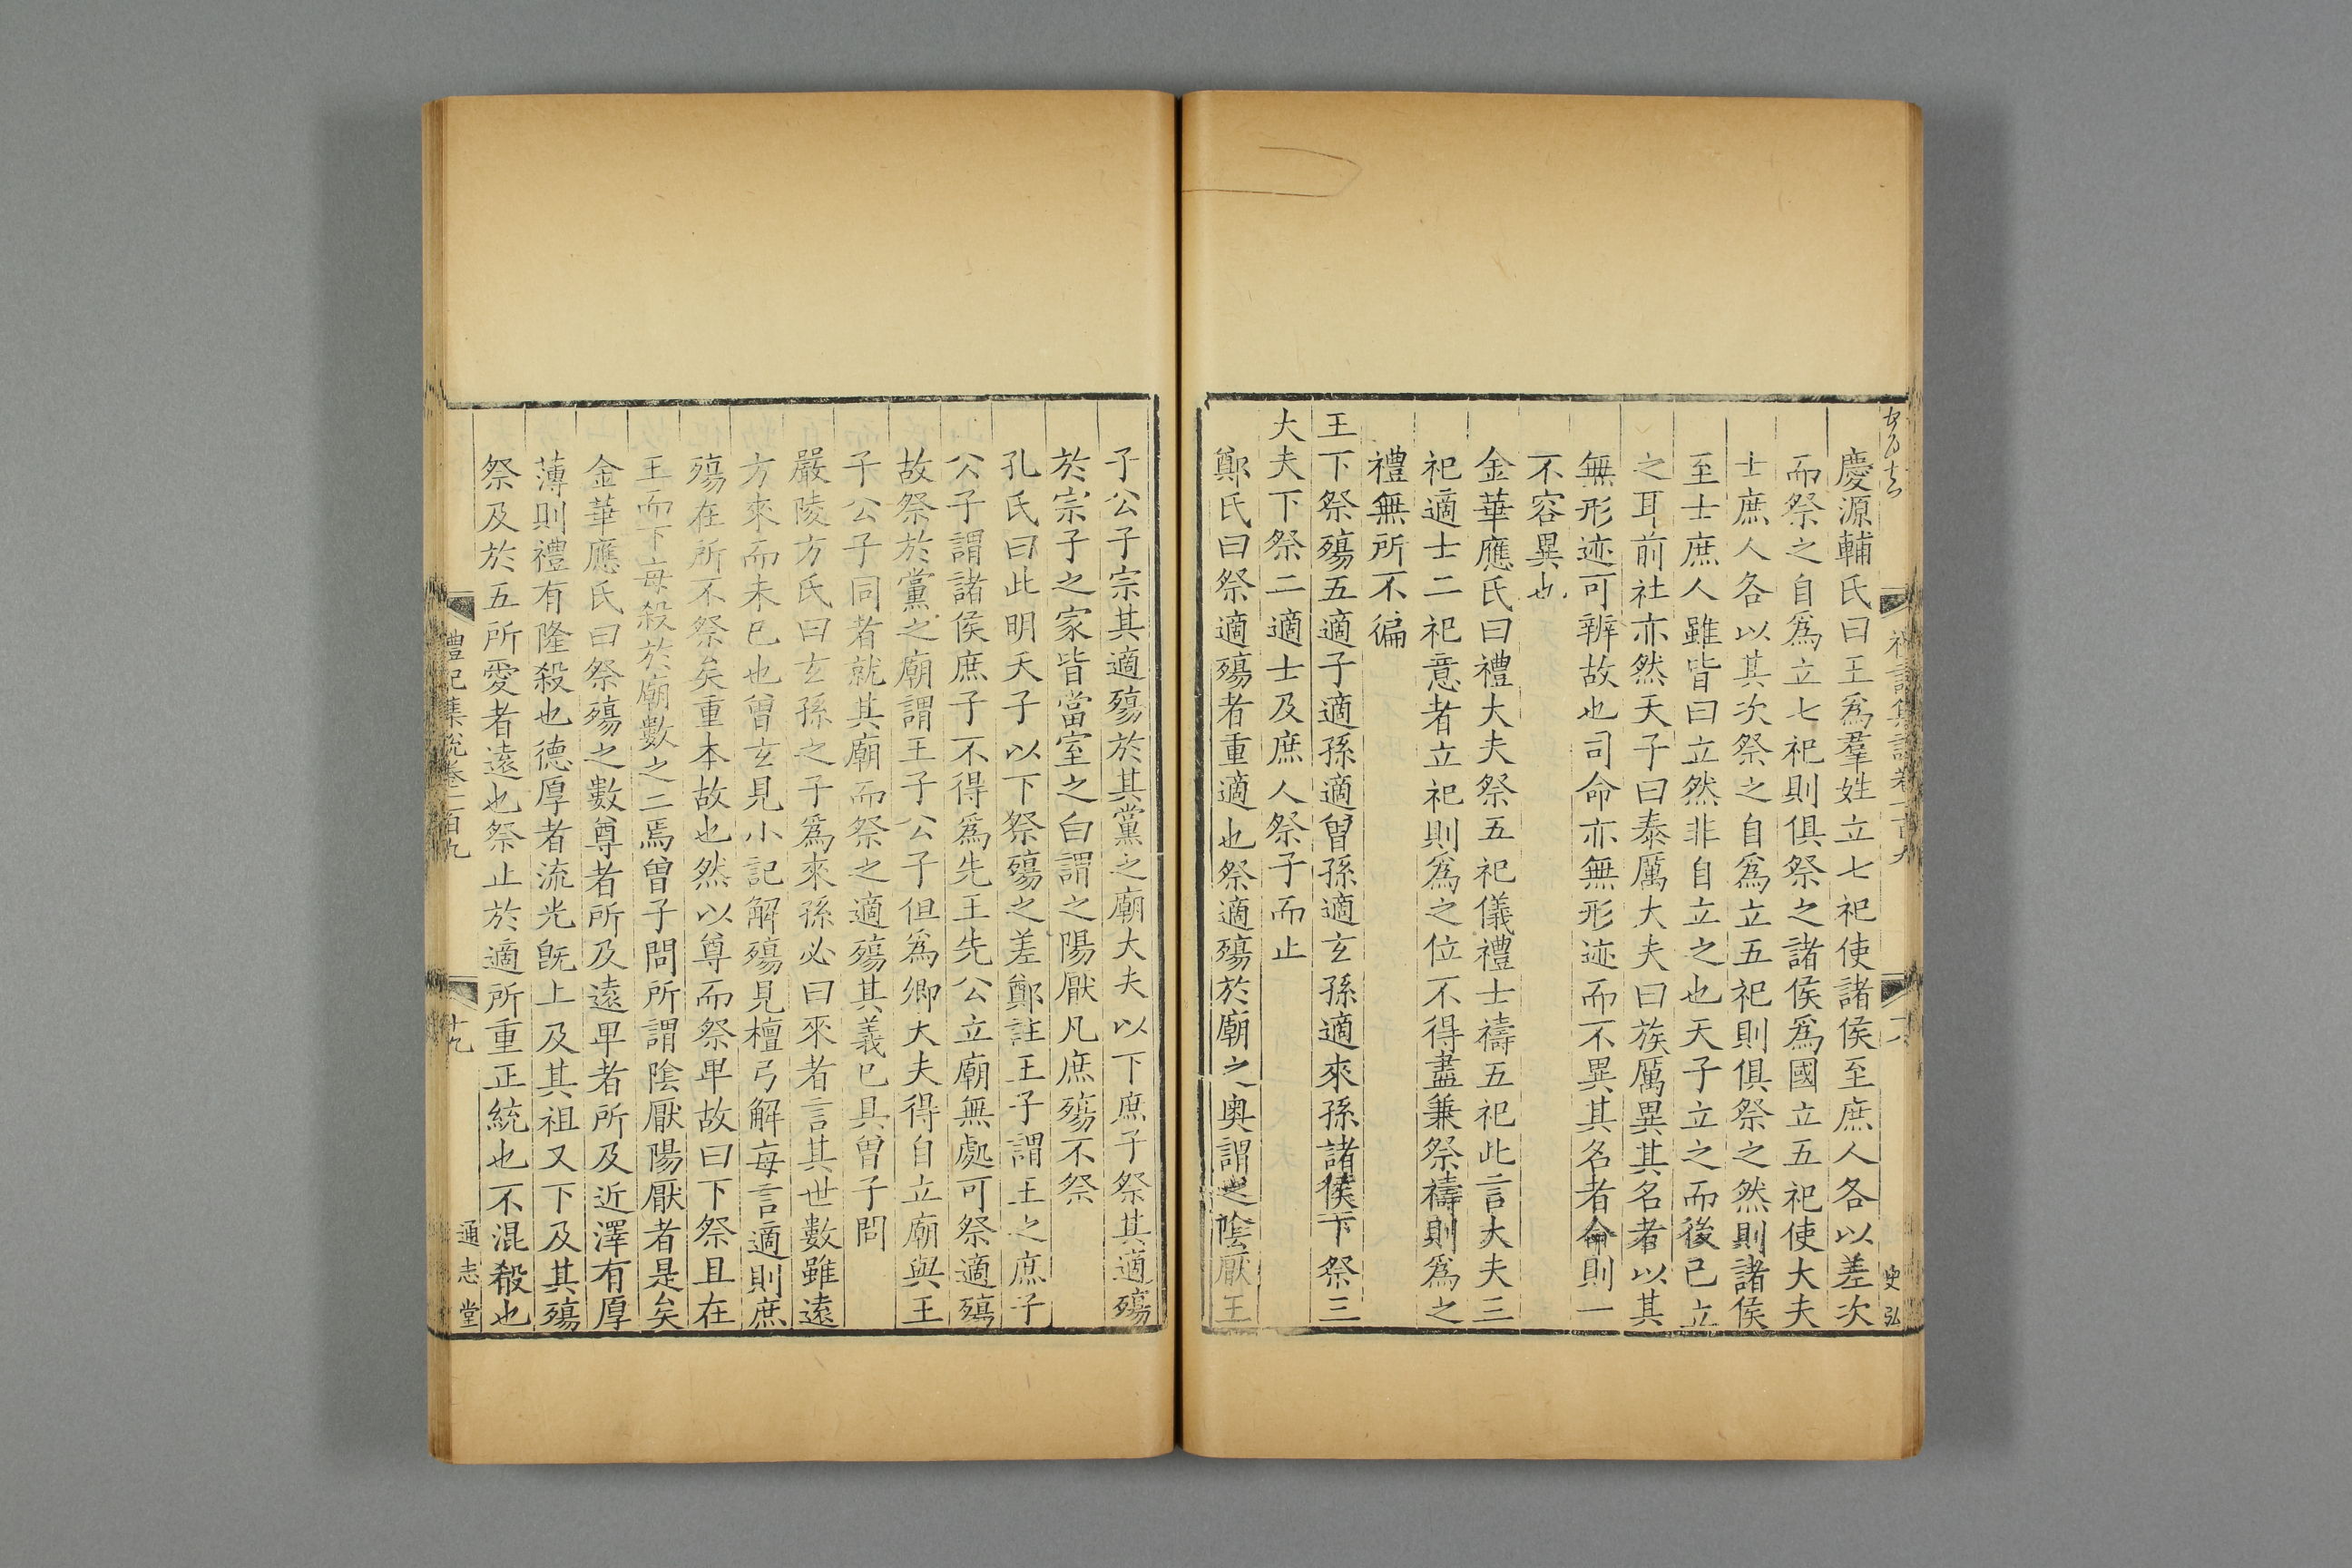 慶源輔氏曰王爲羣姓立七祀使諸侯至庶人各以差次
而祭之自爲立七祀則俱祭之諸侯爲國立五祀使大夫
士庶人各以其次祭之自爲立五祀則俱祭之然則諸侯
至士庶人雖皆曰立然非自立之也天子立之而後已立
之耳前社亦然天子曰泰厲大夫曰族厲異其名者以其
無形迹可辨故也司命亦無形迹而不異其名者命則一
不容異也
金華應氏曰禮大夫祭五祀儀禮士禱五祀此言大夫三
祀適士二祀意者立祀則爲之位不得盡兼祭禱則爲之
禮無所不徧
王下祭殤五適子適孫適曾孫適玄孫適來孫諸侯下祭三
大夫下祭二適士及庶人祭子而止
鄭氏曰祭適殤者重適也祭適殤於廟之奥謂之陰厭王
子公子宗其適殤於其黨之廟大夫以下庶子祭其適殤
於宗子之家皆當室之白謂之陽厭凡庶殤不祭
孔氏曰此明天子以下祭殤之差鄭註王子謂王之庶子
公子謂諸侯庶子不得爲先王先公立廟無處可祭適殤
故祭於黨之廟謂王子公子但爲卿大夫得自立廟與王
子公子同者就其廟而祭之適殤其義已具曾子問
嚴陵方氏曰玄孫之子爲來孫必曰來者言其世數雖遠
方來而未已也曾玄見小記解殤見檀弓解毎言適則庶
殤在所不祭矣重本故也然以尊而祭卑故曰下祭且在
王而下毎殺於廟數之二焉曾子問所謂陰厭陽厭者是矣
金華應氏曰祭殤之數尊者所及遠卑者所及近澤有厚
薄則禮有隆殺也德厚者流光旣上及其祖又下及其殤
祭及於五所愛者遠也祭止於適所重正統也不混殽也
禮記集說卷一百九
十九
通志堂